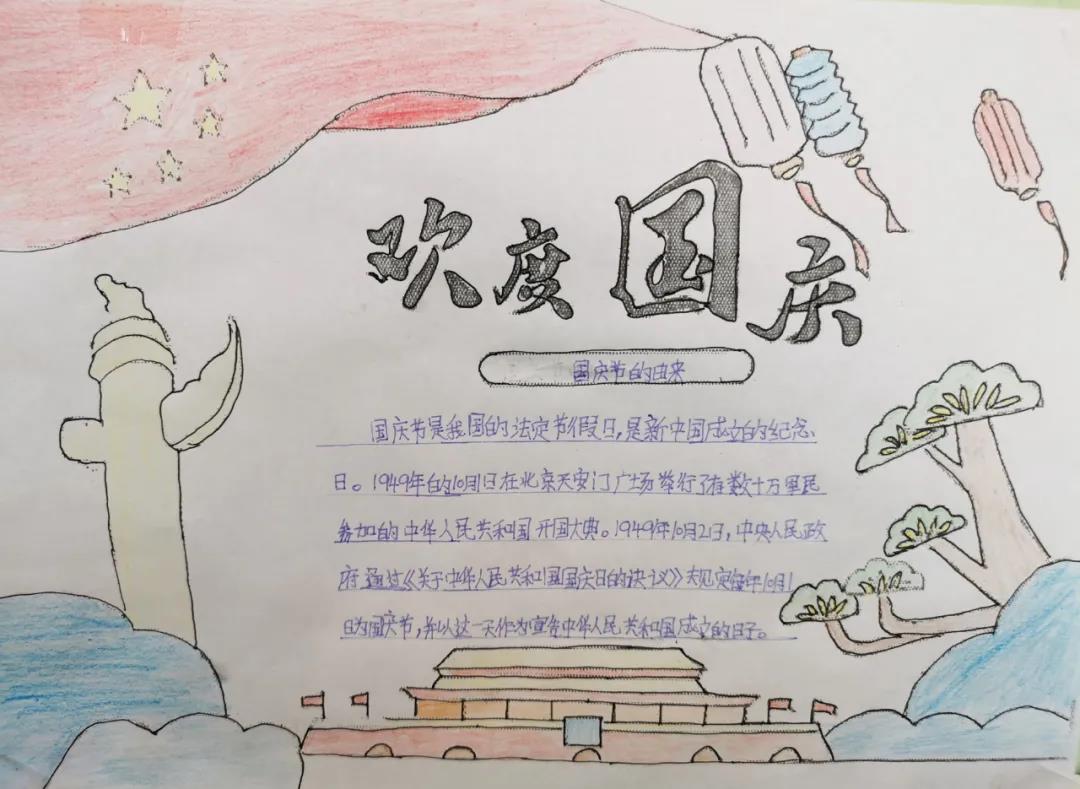 欢度国庆
国庆节的由来
国庆节是我国的法定节假日,是新中国成立的纪念
日。1949年的10月1日在北京天安门广场举行了有数十万军民
参加的中华人民共和国开国大典。1949年10月2日,中央人民政
府通过《关于中华人民共和国国庆日的决议》规定每年10月1
日为国庆节,并以这一天作为宣告中华人民共和国成立的日子。